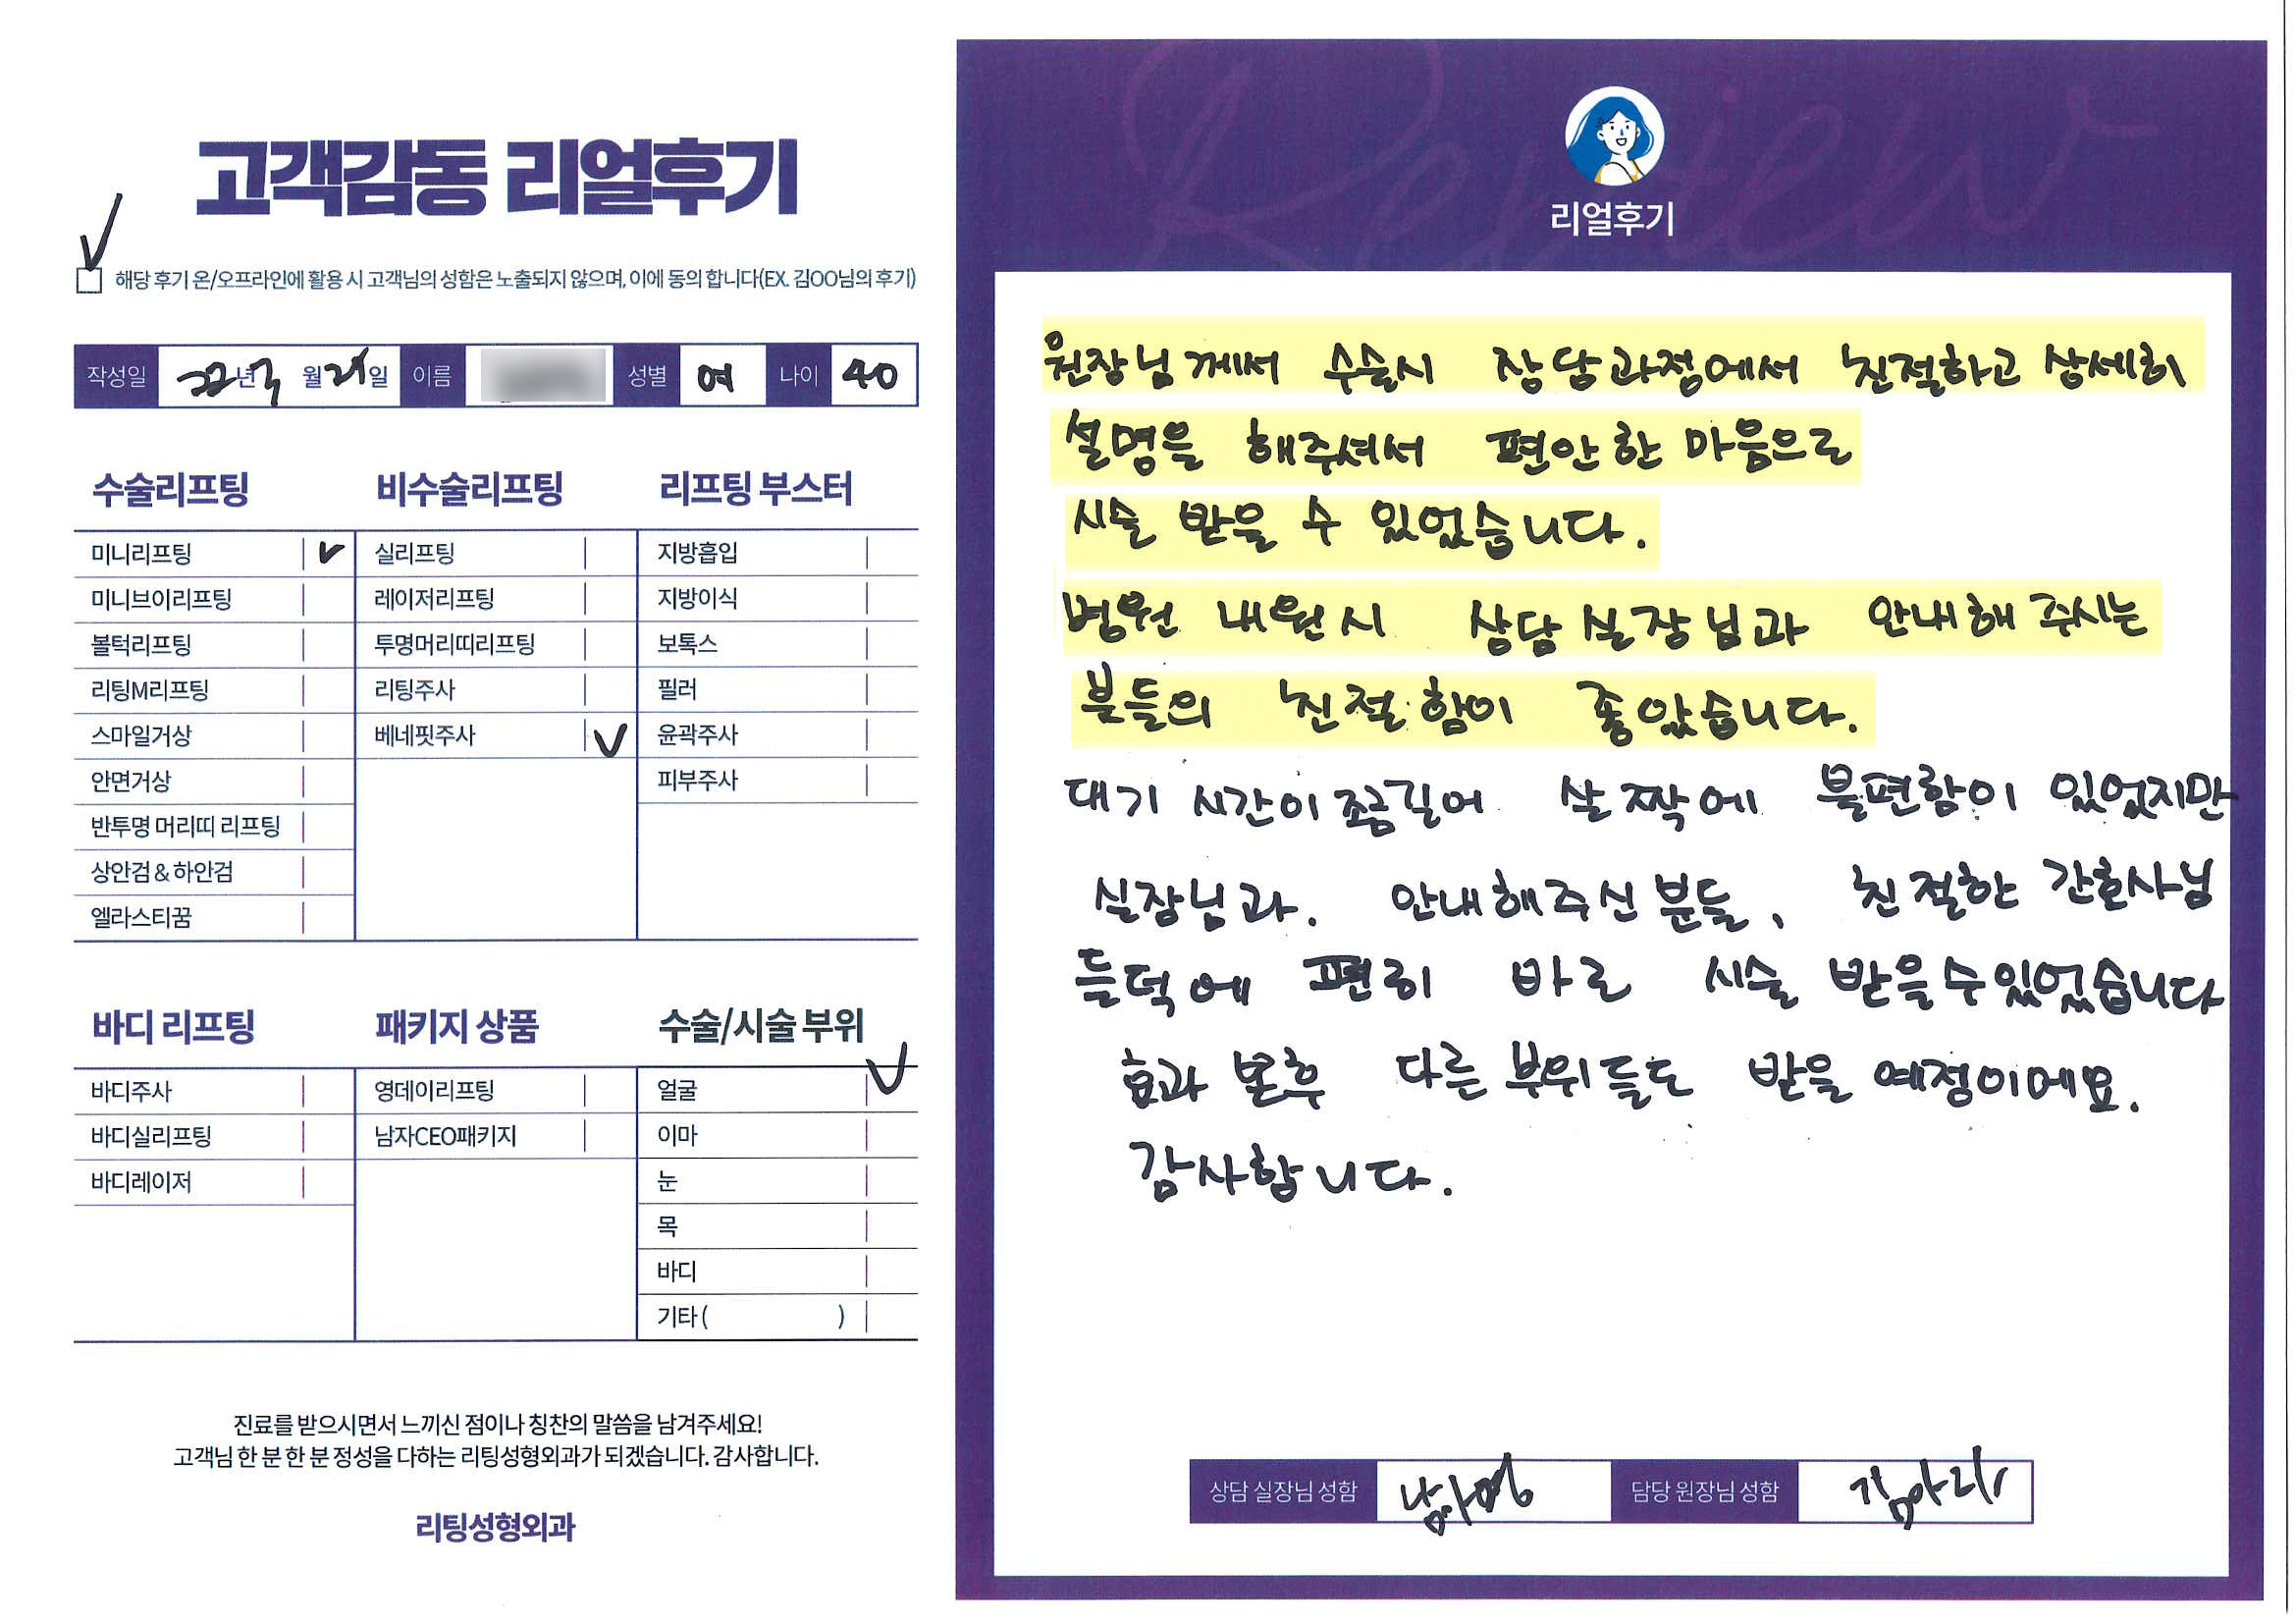 고객감동 리얼후기
해당 후기 온/오프라인에 활용 시 고객님의 성함은 노출되지 않으며, 이에 동의 합니다(EX. 김OO님의 후기)
작성일 22년 월 21일 이름 성별 여 나이 40
수술리프팅
미니리프팅
미니브이리프팅
볼턱리프팅
리팅M리프팅
스마일거상
안면거상
반투명 머리띠 리프팅
상안검 & 하안검
엘라스티꿈
비수술리프팅
실리프팅
레이저리프팅
투명머리띠리프팅
리팅주사
베네핏주사
리프팅 부스터
지방흡입
지방이식
보톡스
필러
윤곽주사
피부주사
바디 리프팅
바디주사
바디실리프팅
바디레이저
패키지 상품
영데이리프팅
남자CEO패키지
수술/시술 부위
얼굴
이마
눈
목
바디
기타 ( )
진료를 받으시면서 느끼신 점이나 칭찬의 말씀을 남겨주세요!
고객님 한 분 한 분 정성을 다하는 리팅성형외과가 되겠습니다. 감사합니다.
리팅성형외과
Review
리얼후기
원장님께서 수술시 상담과정에서 친절하고 상세히
설명을 해주셔서 편안한 마음으로
시술 받을 수 있었습니다.
병원 내원시 상담실장님과 안내해 주시는
분들의 친절함이 좋았습니다.
대기 시간이 조금길어 살짝에 불편함이 있었지만
실장님과. 안내해주신분들, 친절한 간호사님
들덕에 편히 바로 시술 받을수있었습니다
효과 본후 다른 부위들도 받을 예정이에요.
감사합니다.
상담 실장님 성함 담당 원장님 성함